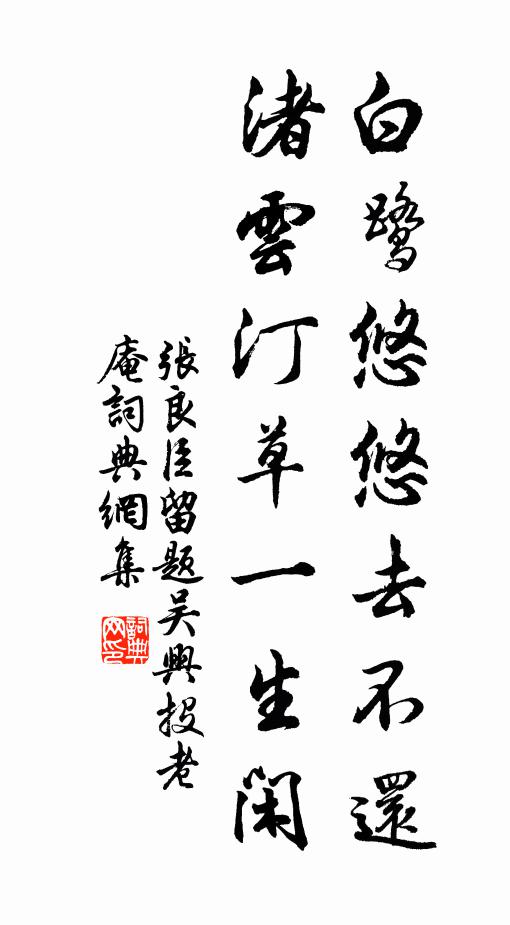 白鹭悠悠去不還
渚雲汀草一生閑
張良臣留题吴興投老
庵詞典網集
詞典网印